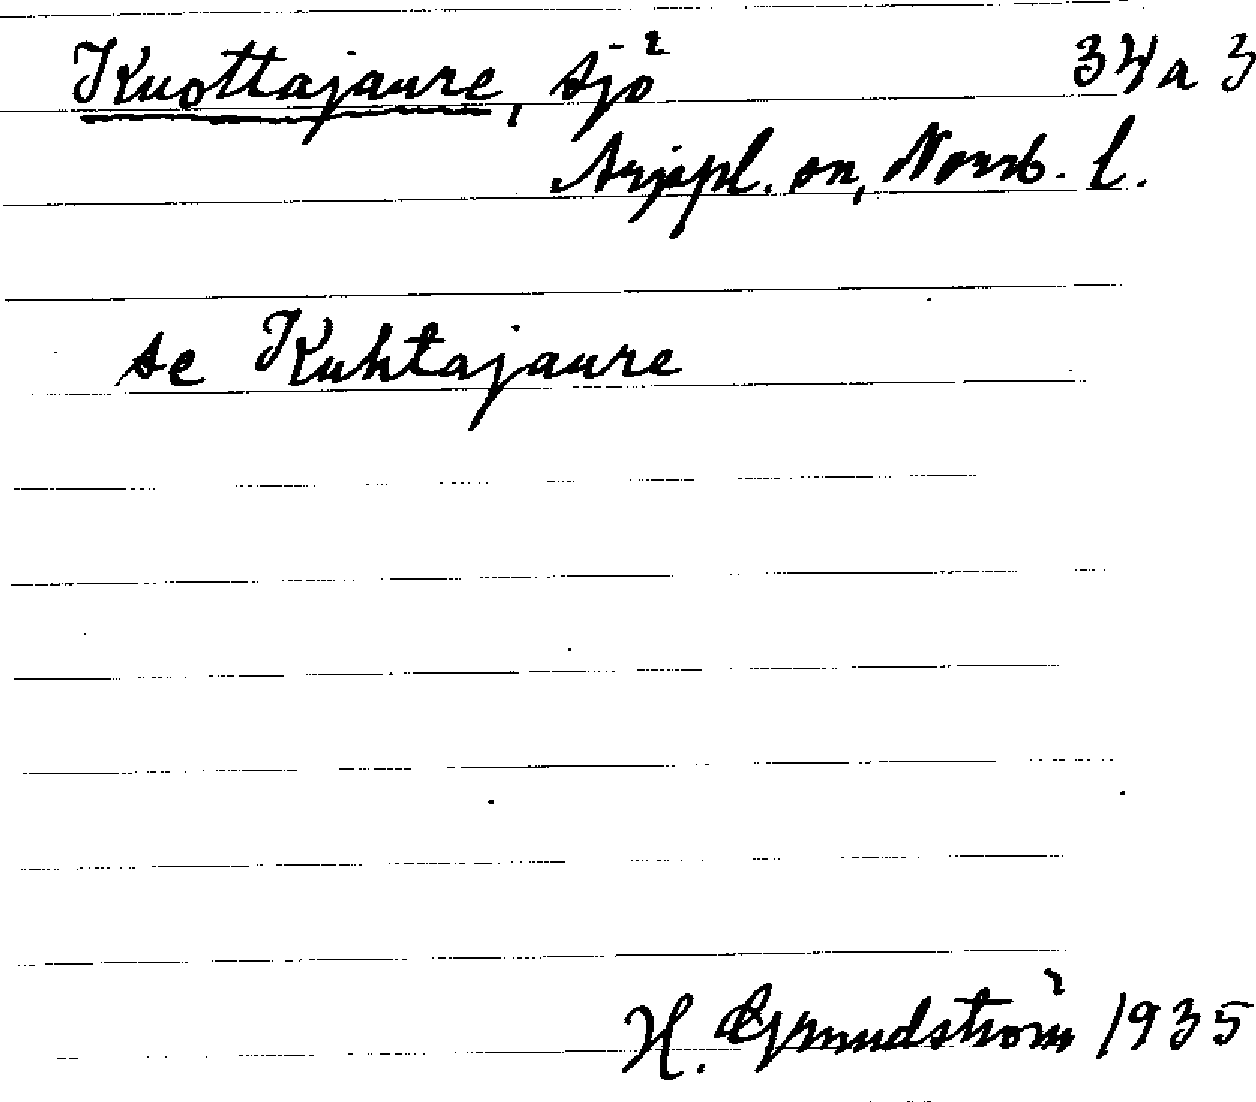 Kuottajaure, sjö 34a 3
Arjepl. sn, Norrb. l.
se Kuhtajaure
H. Grundström 1935